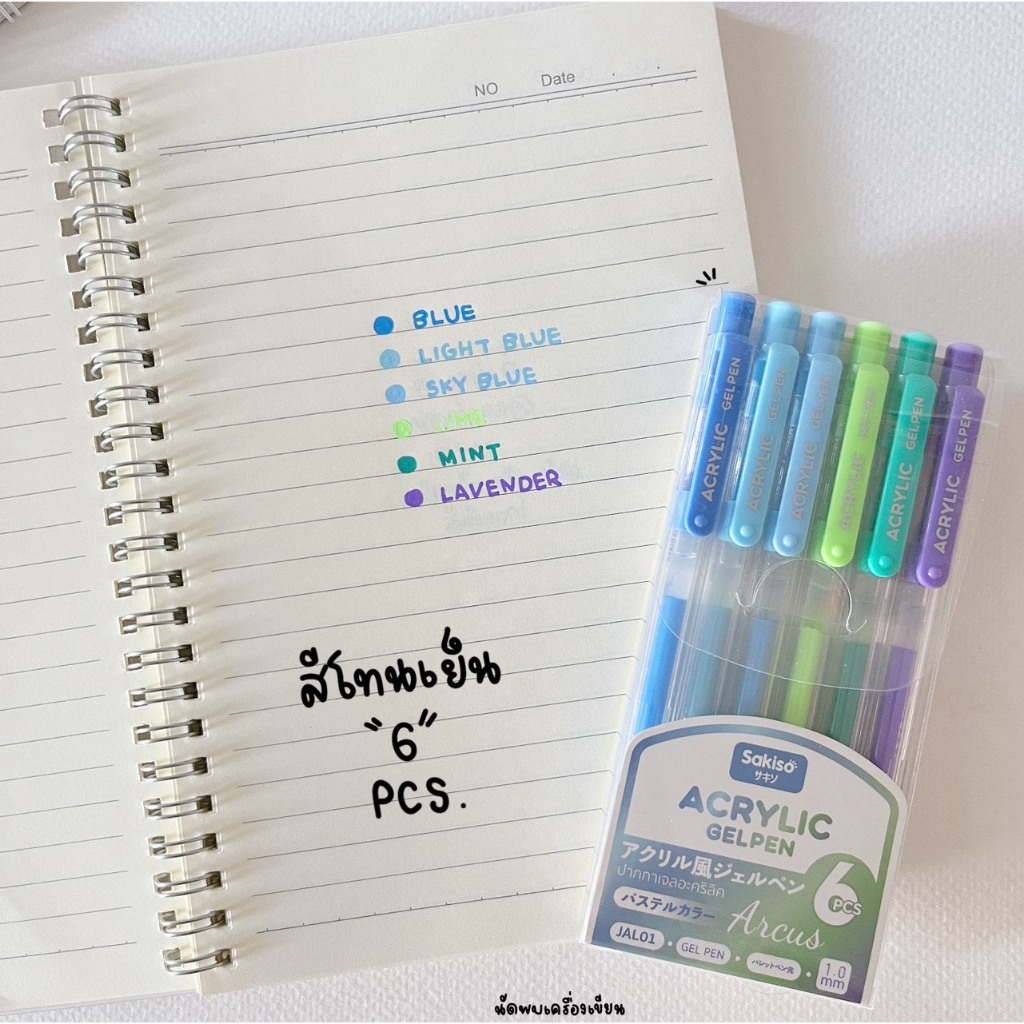 NO Date
BLUE
LIGHT BLUE
SKY BLUE
LIME
MINT
LAVENDER
สีโทนเย็น
"6"
PCS.
ACRYLIC GELPEN
ACRYLIC GELPEN
ACRYLIC GELPEN
ACRYLIC GELPEN
ACRYLIC GELPEN
ACRYLIC GELPEN
Sakiso
サキソ
ACRYLIC
GELPEN
アクリル風ジェルペン
ปากกาเจลอะคริลิค
6 PCS
パステルカラー
Arcus
JAL01 • GEL PEN • バレットペン先
1.0 mm
นัดพบเครื่องเขียน